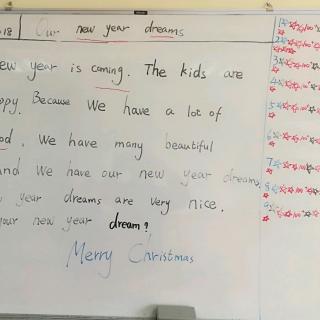 .18 Our new year dreams
ew year is coming. The kids are
ppy. Because We have a lot of
od. We have many beautiful
and We have our new year dreams.
year dreams are very nice.
your new year dream?
Merry Christmas